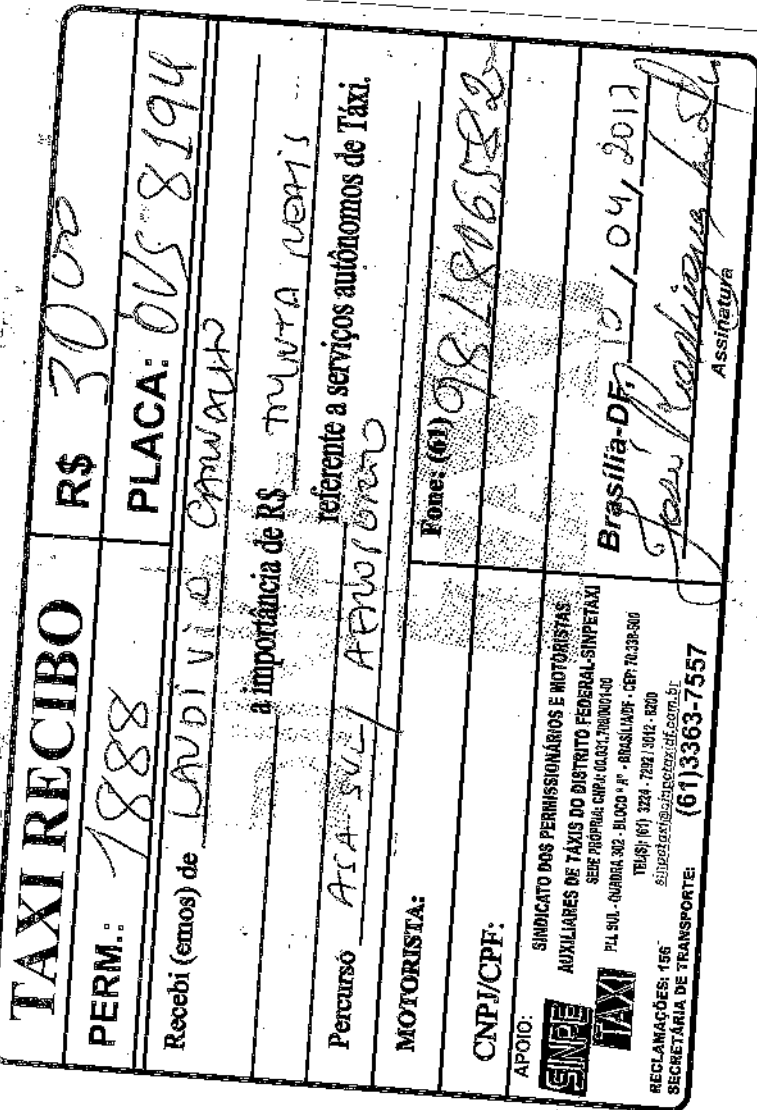 TAXI RECIBO R$ 30,00
PERM.: 1888 PLACA: OVS 8194
Recebi (emos) de LAUDIVIO CARVALHO
a importância de R$ TRINTA REAIS
Percurso ASA SUL / AEROPORTO referente a serviços autônomos de Táxi.
MOTORISTA: Fone: (61) 981806582
CNPJ/CPF:
APOIO:
SINPE
TAXI
SINDICATO DOS PERMISSIONÁRIOS E MOTORISTAS
AUXILIARES DE TÁXIS DO DISTRITO FEDERAL-SINPETAXI
SEDE PRÓPRIA: CNPJ: 00.031.708/0001-00
PLL SUL - QUADRA 302 - BLOCO "A" - BRASÍLIA/DF - CEP: 70.338-500
TEL(S): (61) 3224 - 7292 / 3012 - 8200
sinpetaxi@sinpetaxidf.com.br
RECLAMAÇÕES: 156
SECRETÁRIA DE TRANSPORTE: (61)3363-7557
Brasília-DF, 10 / 04, 2017
José
Assinatura